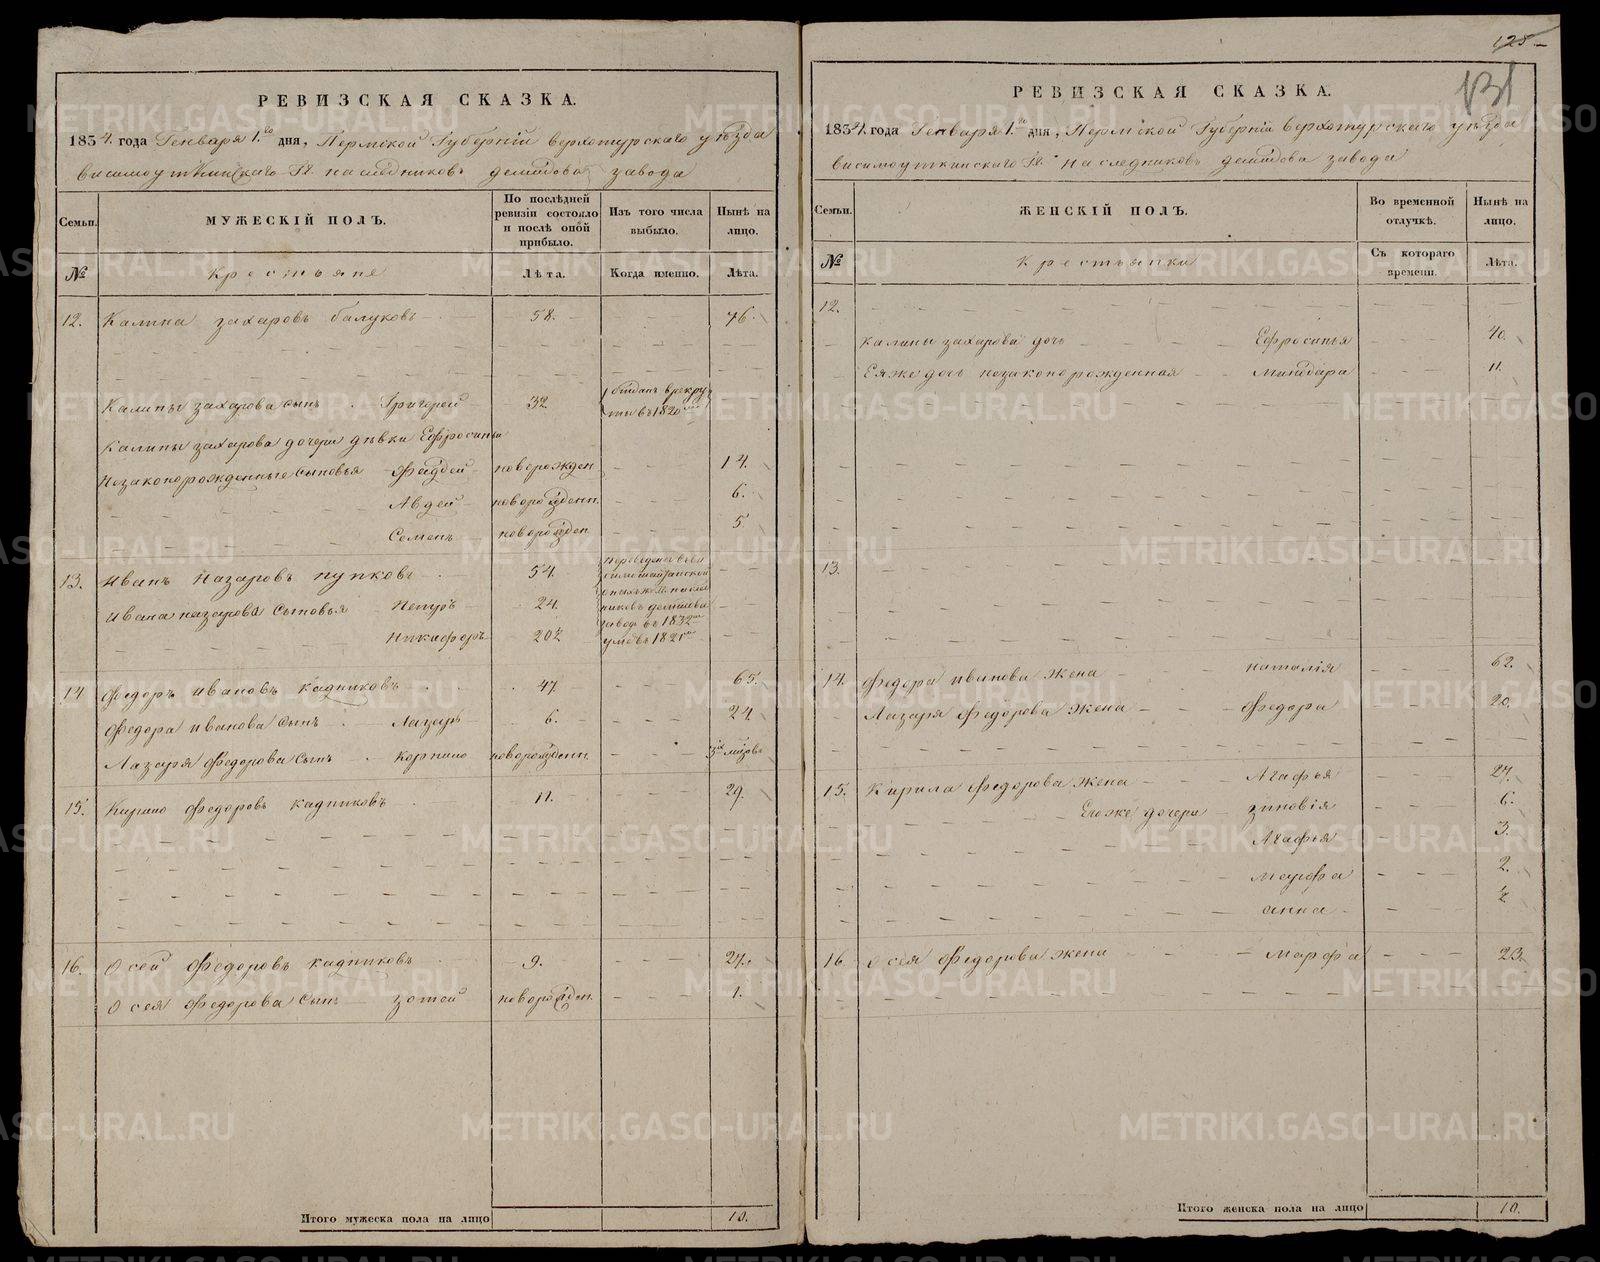 125
131
РЕВИЗСКАЯ СКАЗКА.
1834. года Генваря 1.го дня, Пермской Губерніи верхотурскаго уѣзда
висимоуткинскаго Гг. наследниковъ демидова завода
Семьи.
МУЖЕСКІЙ ПОЛЪ.
По послѣдней ревизіи состояло и послѣ оной прибыло.
Изъ того числа выбыло.
Нынѣ на лицо.
№
Крестьяне
Лѣта.
Когда именно.
Лѣта.
12. Калина захаровъ балуковъ 58. 76.
Калины захарова сынъ Григорей 32 отданъ врекру
ты въ 1820
Калины захарова дочери дѣвки Ефросиньи
Незаконорожденные сыновья Фаддей новорожден 14.
Авдей новорожденн. 6.
Семенъ новорожден 5.
13. Иванъ Назаровъ пупковъ 54.
Ивана назарова Сыновья Петръ 24.
завод въ 1832
Никифоръ 20½ умеръ 1821
14 Федоръ ивановъ кадниковъ 47. 65.
Федора иванова сынъ Лазарь 6. 24
Лазаря Федорова Сынъ Корнило новорожденн.
15. Кирило Федоровъ кадниковъ 11. 29.
16. Осей Федоровъ кадниковъ 9. 27.
Осея Федорова Сынъ зотей новорожден. 1.
Итого мужеска пола на лицо 10.
РЕВИЗСКАЯ СКАЗКА.
1834. года Генваря 1.го дня, Пермской Губерніи верхотурскаго уѣзда
висимоуткинскаго Гг. наследниковъ демидова завода
Семьи.
ЖЕНСКІЙ ПОЛЪ.
Во временной отлучкѣ.
Нынѣ на лицо.
№
Крестьянки
Съ котораго времени.
Лѣта.
12.
Калины захарова дочь Ефросинья 40.
Еяже дочь незаконорожденная 11.
13.
14. Федора иванова жена наталія 62.
Лазаря Федорова жена Федора 20.
15. Кирила Федорова жена Агафья 27.
Егоже дочери зиновія 6.
Агафья 3.
Марфа 2.
анна ½
16 Осея Федорова жена Марфа 23
Итого женска пола на лицо 10.
METRIKI.GASO-URAL.RU